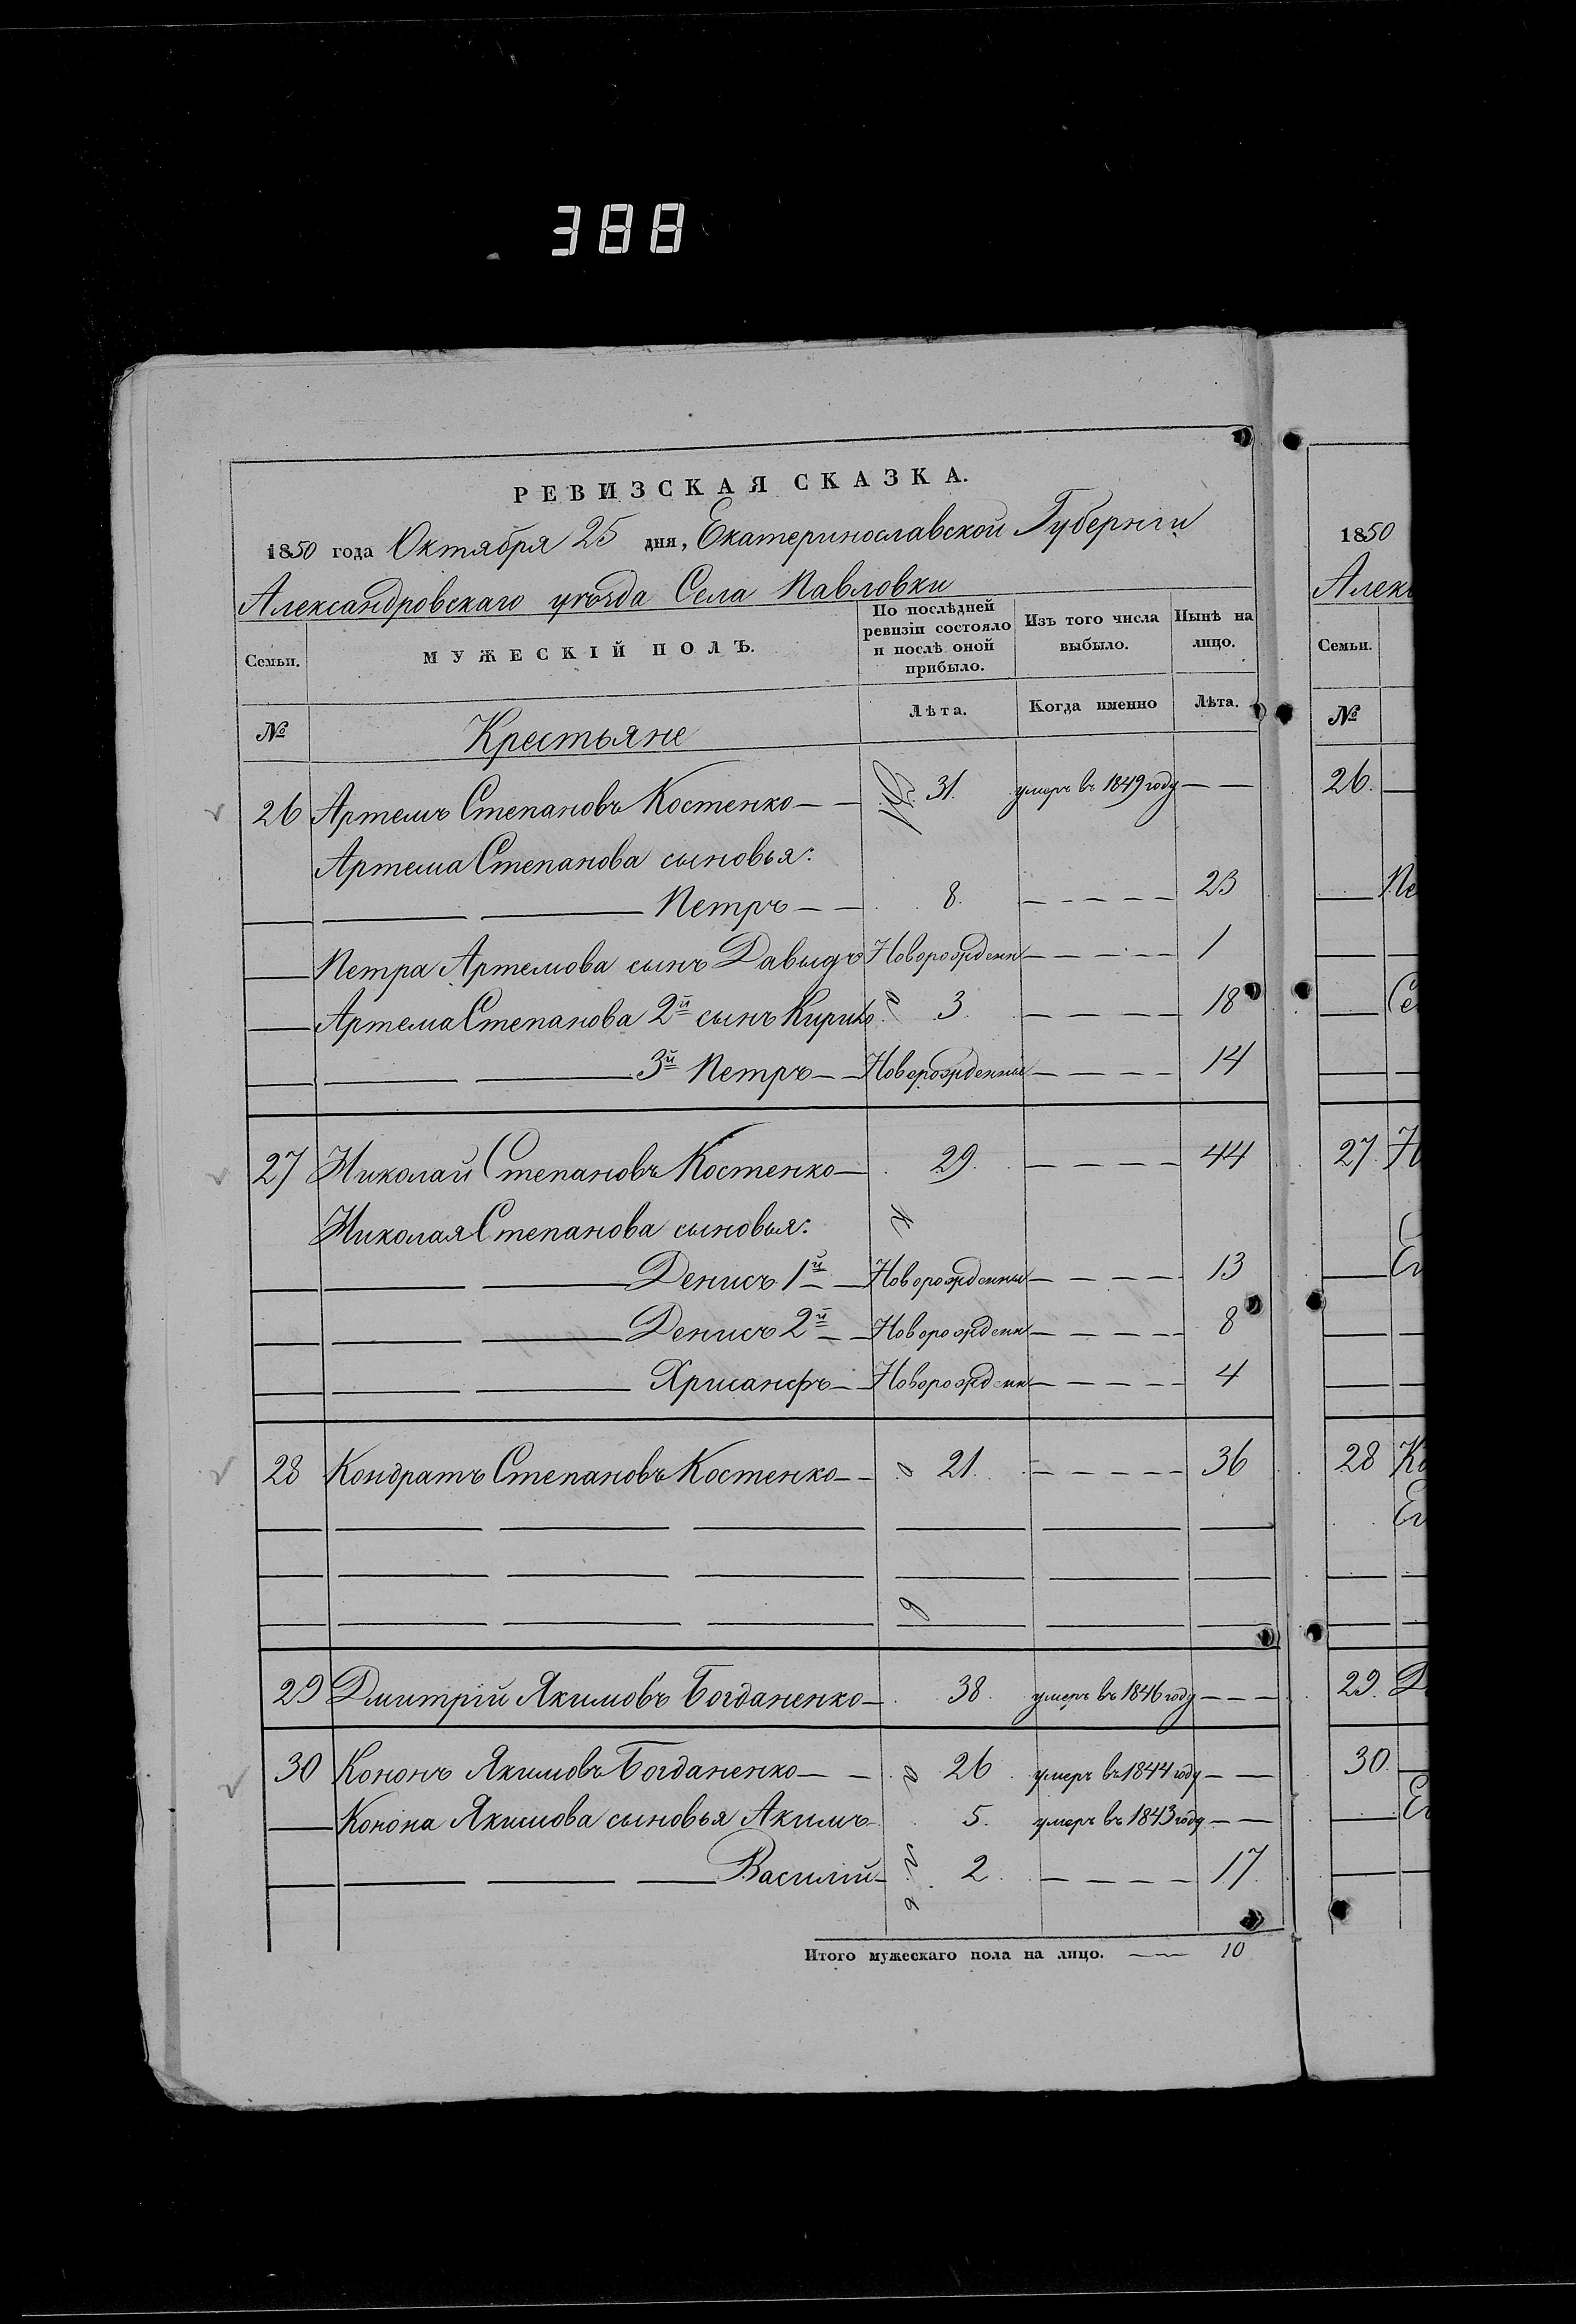 388
РЕВИЗСКАЯ СКАЗКА.
1850 года Октября 25 дня, Екатеринославской Губернiи
Александровскаго уѣзда Села Павловки
Семьи. МУЖЕСКІЙ ПОЛЪ. По послѣдней ревизіи состояло и послѣ оной прибыло. Изъ того числа выбыло. Нынѣ на лицо.
№ Крестьяне Лѣта. Когда именно Лѣта.
26 Артемъ Степановъ Костенко 31. умеръ въ 1849 году
Артема Степанова сыновья:
Петръ 8. 23
Петра Артемова сынъ Давыдъ Новорожденн 1
Артема Степанова 2й сынъ 3 18
3й Петръ Новорожденные 14
27 Николай Степановъ Костенко 29. 44
Николая Степанова сыновья:
Денисъ 1й Новорожденны 13
Денисъ 2й Новорожденн 8
Хрисанфъ Новорожденн 4
28 Кондратъ Степановъ Костенко 21. 36
29 Дмитрій Якимовъ Богданенко 38. умеръ въ 1846 году
30 Кононъ Якимовъ Богданенко 26 умеръ въ 1844 году
Конона Якимова сыновья Акимъ 5. умеръ въ 1843 году
Василій 2 17
Итого мужескаго пола на лицо. 10
1850
Алек
Семьи.
№
26.
Пе
Се
27. Н
Ег
28 Ко
Ег
29. Д
30.
Ег